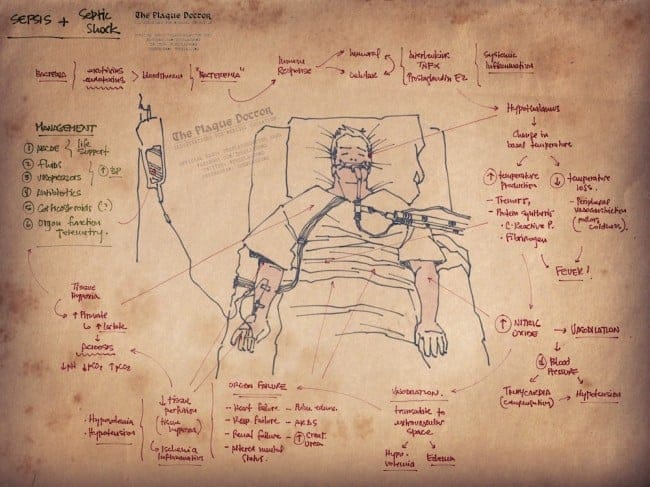 SEPSIS + Septic Shock
The Plague Doctor
Bacteria
Bloodstream
"BACTEREMIA"
Immune Response
Humoral
Cellular
Interleukins
TNFα
Prostaglandin E2
Systemic Inflammation
Hypothalamus
Change in basal temperature
↑ temperature Production
- Tremors,
- Protein synthesis
• C-Reactive P.
• Fibrinogen
↓ temperature loss.
- Peripheral vasoconstriction
(pallor, coldness).
FEVER!
The Plague Doctor
MANAGEMENT
① ABCDE
Life Support
② Fluids
③ Vasopressors
↑ BP
④ Antibiotics
⑤ Corticosteroids (?)
⑥ Organ function
Telemetry.
Tissue Hypoxia
↑ Pyruvate
↳ ↑ Lactate
ACIDOSIS
↓pH
• Hypovolemia
• Hypotension
↓ tissue perfusion
(tissue hypoxia)
↳ Ischemia
Inflammation
ORGAN FAILURE
- Heart Failure
- Resp. Failure
- Renal failure
- Altered mental status.
- Pulm. edema.
- ARDS
- ↑ Creat.
Urea
VASODILATION.
transudate to
extravascular
space
Hypovolemia
Edema
↑ NITRIC OXIDE
VASODILATION
↓ Blood Pressure
TACHYCARDIA
(compensatory)
Hypotension